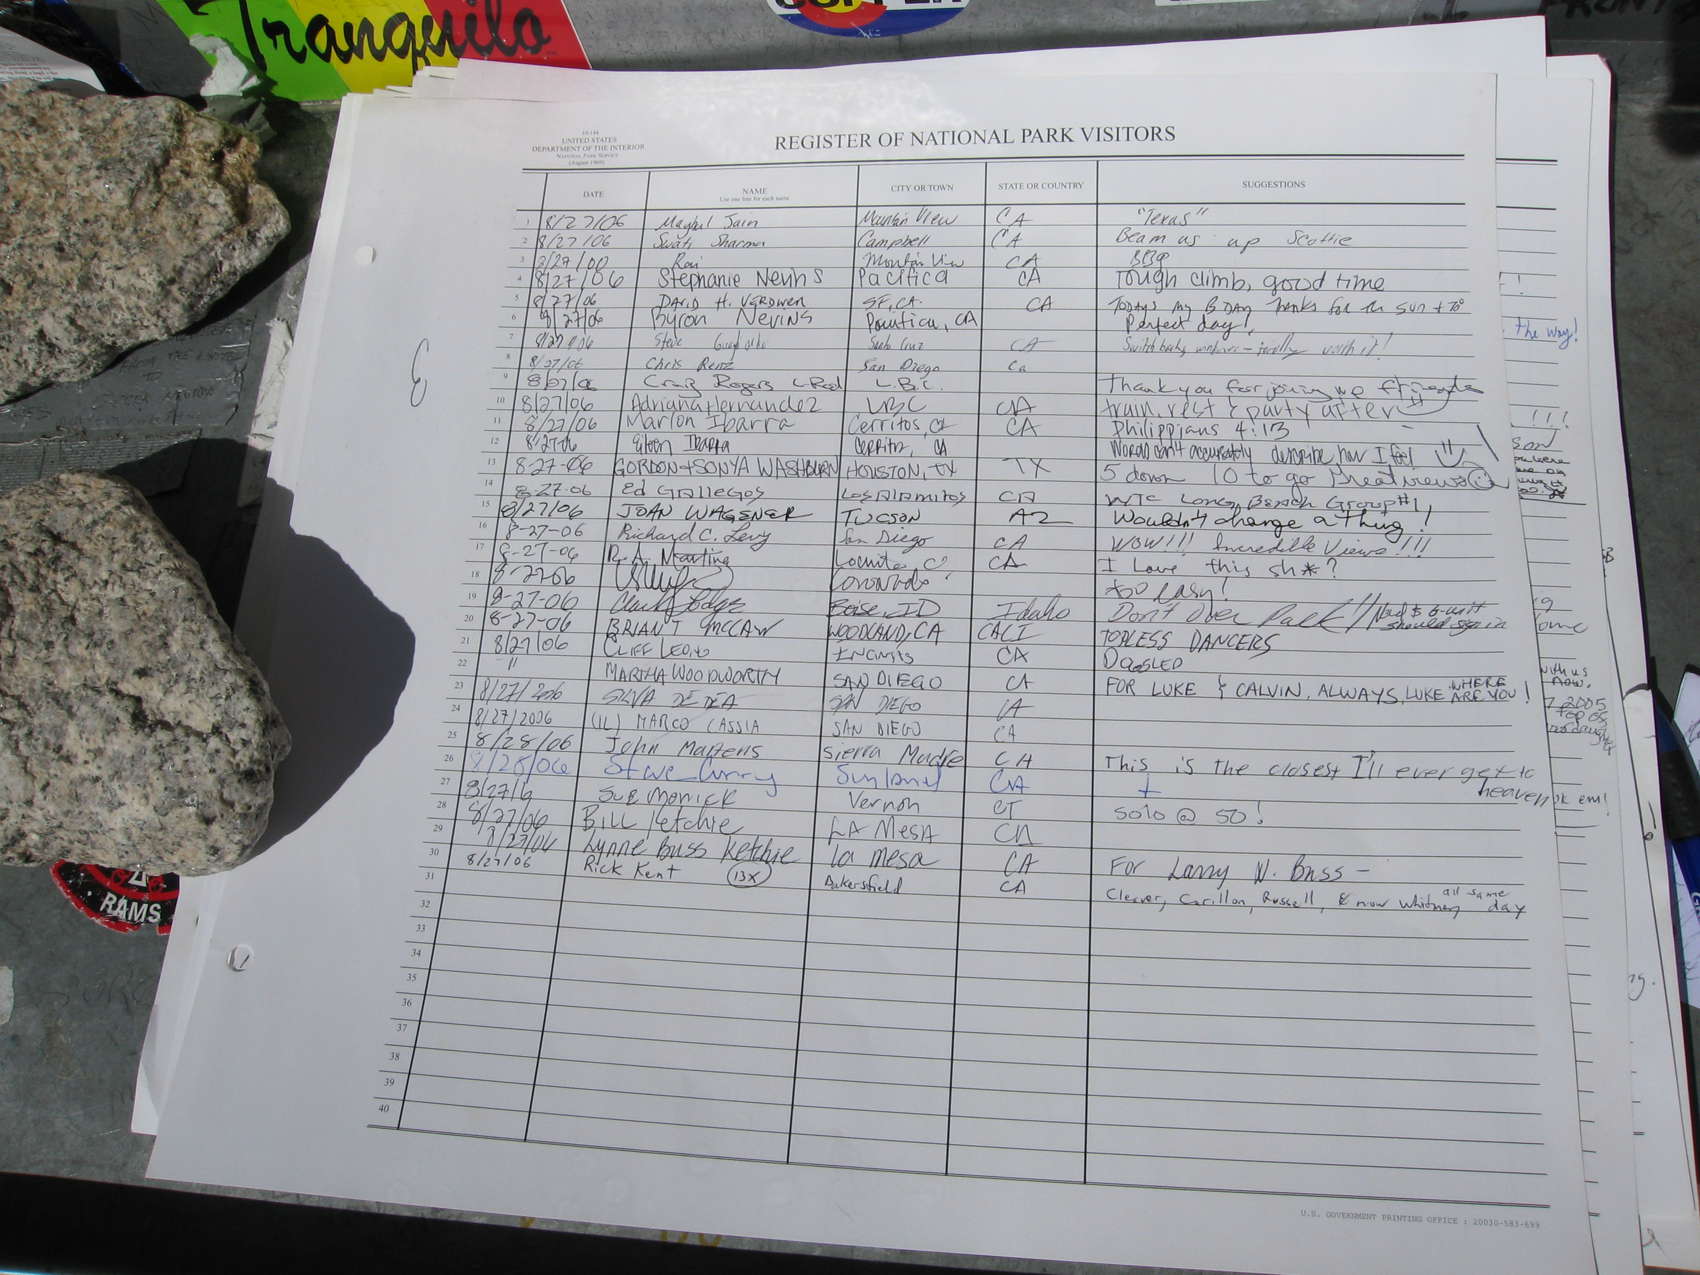 Tranquilo
COPPER
10-144
UNITED STATES
DEPARTMENT OF THE INTERIOR
NATIONAL PARK SERVICE
(August 1969)
REGISTER OF NATIONAL PARK VISITORS
DATE NAME CITY OR TOWN STATE OR COUNTRY SUGGESTIONS
Use one line for each name
1 8/27/06 Jain Mountain View CA "Texas"
2 8/27/06 Swati Sharma Campbell CA Beam us up Scottie
3 Mountain View CA BBQ
4 8/27/06 Stephanie Nevins Pacifica CA Tough climb, good time
5 8/27/06 DAVID H. SF, CA. CA TODAYS MY B DAY Thanks for the sun +
6 8/27/06 Byron Nevins Pacifica, CA Perfect day!
7 Steve Santa Cruz CA worth it!
8 8/27/06 Chris San Diego Ca
9 8/27/06 Craig Rogers L.B.C. Thank you for joining me
10 8/27/06 Adriana Hernandez LBC CA train, rest & party after
11 8/27/06 Marlon Ibarra Cerritos, CA CA Philippians 4:13
12 8-27-06 Ibarra Cerritos, CA Words can't accurately describe how I feel
13 8-27-06 GORDON + SONYA WASHBURN HOUSTON, TX TX 5 down 10 to go Great views
14 8-27-06 Ed Gallegos Los Alamitos CA WTC Long Beach Group #1
15 8/27/06 JOAN WAGSNER TUCSON AZ Wouldn't change a thing!
16 8-27-06 Richard C. Levy San Diego CA WOW!!! Incredible Views!!!!
17 8-27-06 R. A. Martina Lomita CA I Love this sh*?
18 8-27-06 Coronado too easy!
19 8-27-06 Clark Boise, ID Idaho Don't Over Pack!!
20 8-27-06 BRIAN T McCAW WOODLAND, CA CALI TOPLESS DANCERS
21 8/27/06 CLIFF CA DOGSLED
22 " MARTHA WOODWORTH SAN DIEGO CA FOR LUKE & CALVIN, ALWAYS, LUKE WHERE ARE YOU!
23 8/27/206 SILVA DE DEA SAN DIEGO CA
24 8/27/2006 (IL) MARCO CASSIA SAN DIEGO CA
25 8/28/06 John Martens Sierra Madre CA This is the closest I'll ever get to
26 8/28/06 Steve Curry Sunland CA heaven
27 8/27/ SUE MONICK Vernon CT Solo @ 50!
28 8/27/06 BILL Ketchie LA MESA CA
29 8/27/06 Lynne Buss Ketchie La Mesa CA For Larry N. Buss -
30 8/27/06 Rick Kent 13x Bakersfield CA Cleaver, Carillon, Russell, & now Whitney all same day
31
32
33
34
35
36
37
38
39
40
U.S. GOVERNMENT PRINTING OFFICE : 20030-583-699
the way!
RAMS